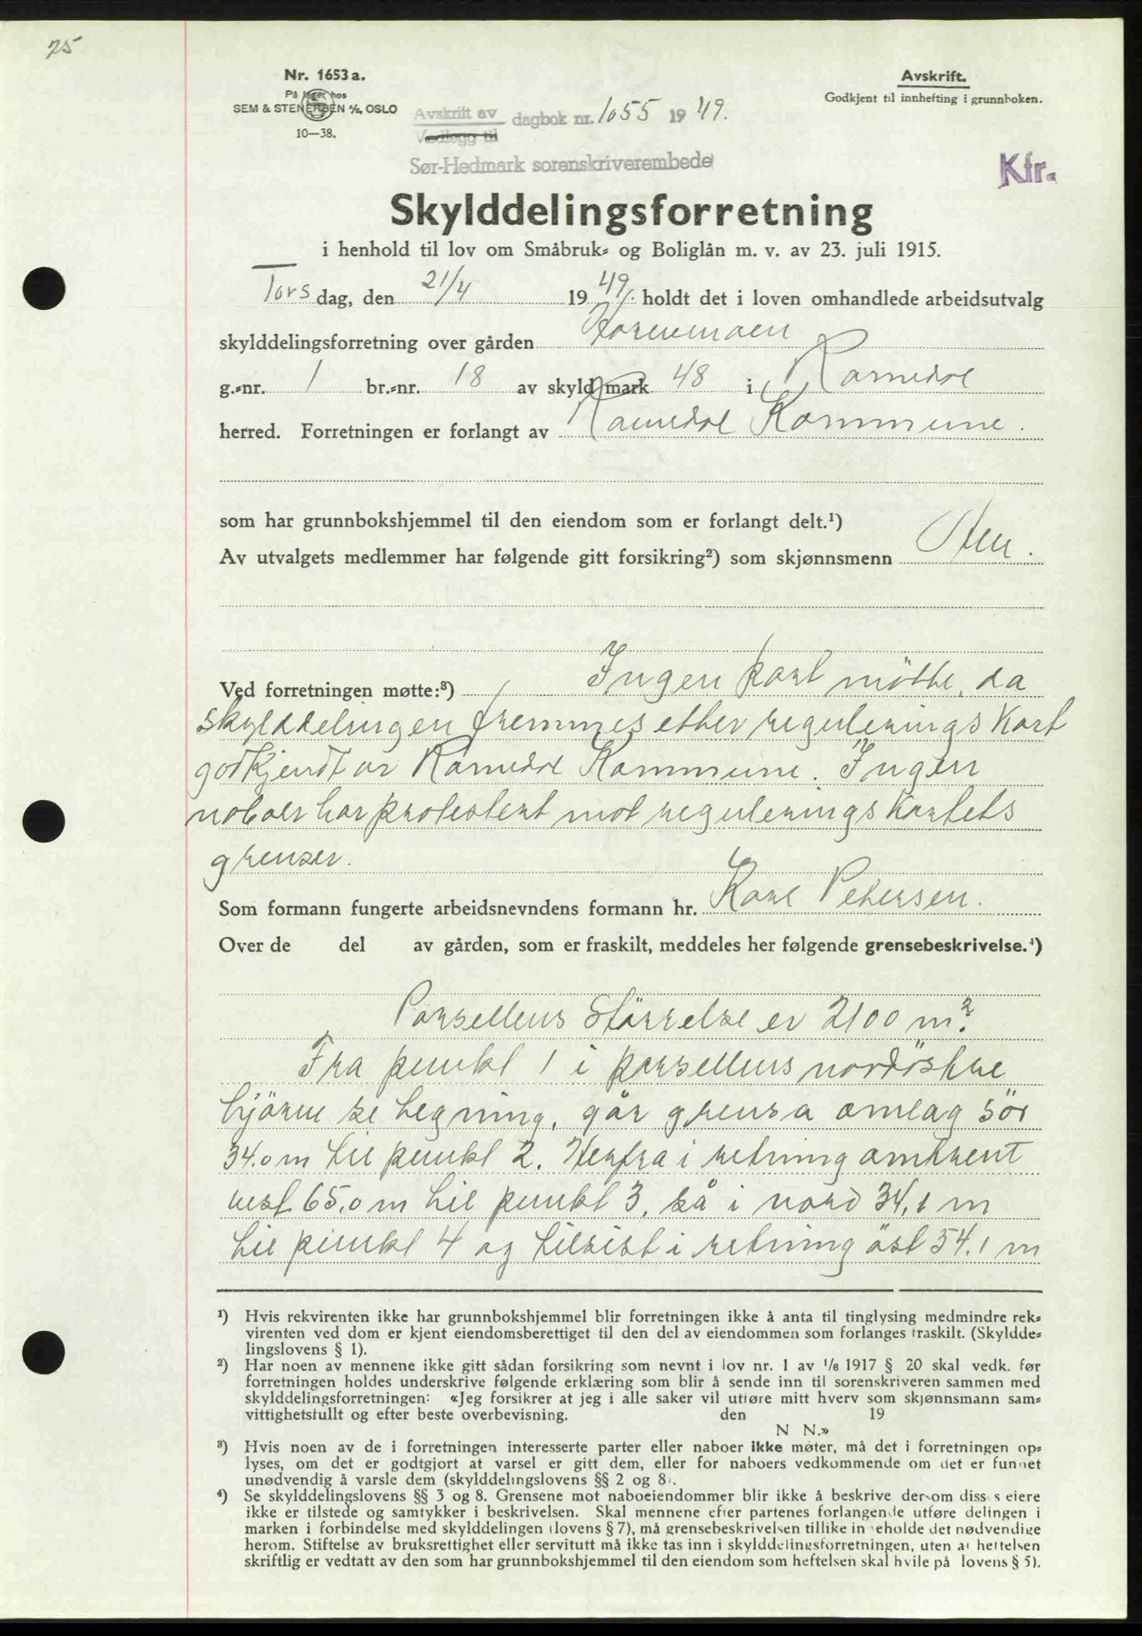 75
Nr. 1653 a.
På lager hos
SEM & STENERSEN A/S, OSLO
10—38.
Avskrift.
Godkjent til innhefting i grunnboken.
Avskrift av dagbok nr. 1055 1949.
Vedlegg til
Sør-Hedmark sorenskriverembede
Kfr.
Skylddelingsforretning
i henhold til lov om Småbruk- og Boliglån m. v. av 23. juli 1915.
Torsdag, den 21/4 1949. holdt det i loven omhandlede arbeidsutvalg
skylddelingsforretning over gården
g.-nr. 1 br.-nr. 18 av skyld mark 48 i Romedal
herred. Forretningen er forlangt av Romedal Kommune.
som har grunnbokshjemmel til den eiendom som er forlangt delt.¹)
Av utvalgets medlemmer har følgende gitt forsikring²) som skjønnsmenn
Ved forretningen møtte:³) Ingen part mötte, da
skylddelingen fremmes etter regulerings kart
godkjendt av Romedal Kommune. Ingen
naboer har protestert mot regulerings kartets
grenser.
Som formann fungerte arbeidsnevndens formann hr. Karl Petersen.
Over de del av gården, som er fraskilt, meddeles her følgende grensebeskrivelse.⁴)
Parsellens Störrelse er 2100 m².
Fra punkt 1 i parsellens nordöstre
hjörne se tegning, går grensa omlag sör
34.0 m til punkt 2. Herfra i retning omtrent
vest 65.0 m til punkt 3, så i nord 34,1 m
til punkt 4 og tilsist i retning öst 54.1 m
¹) Hvis rekvirenten ikke har grunnbokshjemmel blir forretningen ikke å anta til tinglysing medmindre rek-
virenten ved dom er kjent eiendomsberettiget til den del av eiendommen som forlanges fraskilt. (Skyldde-
lingslovens § 1).
²) Har noen av mennene ikke gitt sådan forsikring som nevnt i lov nr. 1 av 1/6 1917 § 20 skal vedk. før
forretningen holdes underskrive følgende erklæring som blir å sende inn til sorenskriveren sammen med
skylddelingsforretningen: «Jeg forsikrer at jeg i alle saker vil utføre mitt hverv som skjønnsmann sam-
vittighetsfullt og efter beste overbevisning. den 19
N N.»
³) Hvis noen av de i forretningen interesserte parter eller naboer ikke møter, må det i forretningen op-
lyses, om det er godtgjort at varsel er gitt dem, eller for naboers vedkommende om det er funnet
unødvendig å varsle dem (skylddelingslovens §§ 2 og 8).
⁴) Se skylddelingslovens §§ 3 og 8. Grensene mot naboeiendommer blir ikke å beskrive dersom disses eiere
ikke er tilstede og samtykker i beskrivelsen. Skal mennene efter partenes forlangende utføre delingen i
marken i forbindelse med skylddelingen (lovens § 7), må grensebeskrivelsen tillike inneholde det nødvendige
herom. Stiftelse av bruksrettighet eller servitutt må ikke tas inn i skylddelingsforretningen, uten at heftelsen
skriftlig er vedtatt av den som har grunnbokshjemmel til den eiendom som heftelsen skal hvile på (lovens § 5).